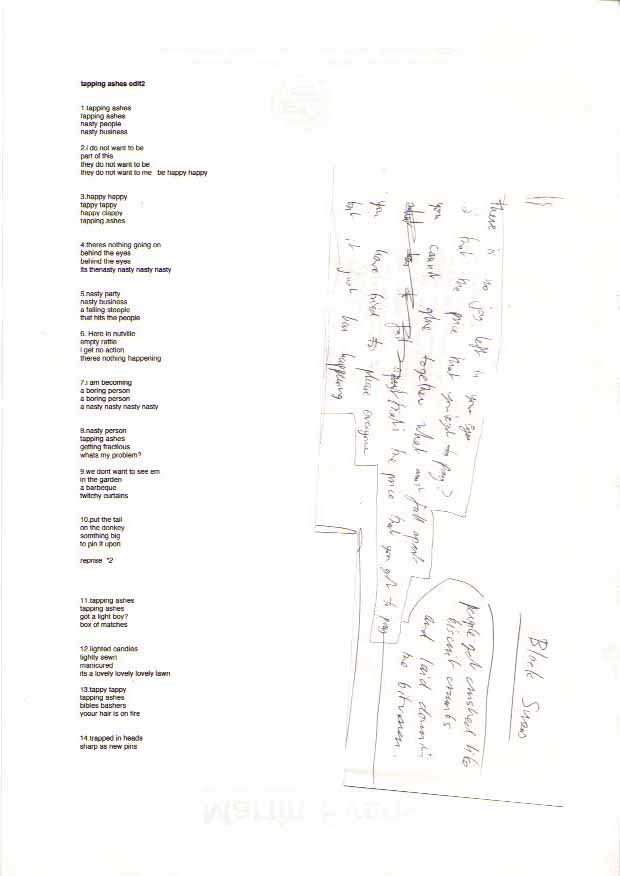 tapping ashes edit2
1.tapping ashes
tapping ashes
nasty people
nasty business
2.i do not want to be
part of this
they do not want to be
they do not want to me be happy happy
3.happy happy
tappy tappy
happy clappy
tapping ashes
4.theres nothing going on
behind the eyes
behind the eyes
its thenasty nasty nasty nasty
5.nasty party
nasty business
a falling steeple
that hits the people
6. Here in nutville
empty rattle
i get no action
theres nothing happening
7.i am becoming
a boring person
a boring person
a nasty nasty nasty nasty
8.nasty person
tapping ashes
getting fractious
whats my problem?
9.we dont want to see em
in the garden
a barbeque
twitchy curtains
10.put the tail
on the donkey
somthing big
to pin it upon
reprise *2
11.tapping ashes
tapping ashes
got a light boy?
box of matches
12.lighted candles
tightly sewn
manicured
its a lovely lovely lovely lawn
13.tappy tappy
tapping ashes
bibles bashers
yoour hair is on fire
14.trapped in heads
sharp as new pins
Black Swan
people get crushed like
biscuit crumbs
and laid down in
the bitumen.
there is no joy left in your eyes
is that the price that pay?
you cannot glue together what must fall apart
thats the price that you got to pay
you have tried to please everyone
but it just isn happening